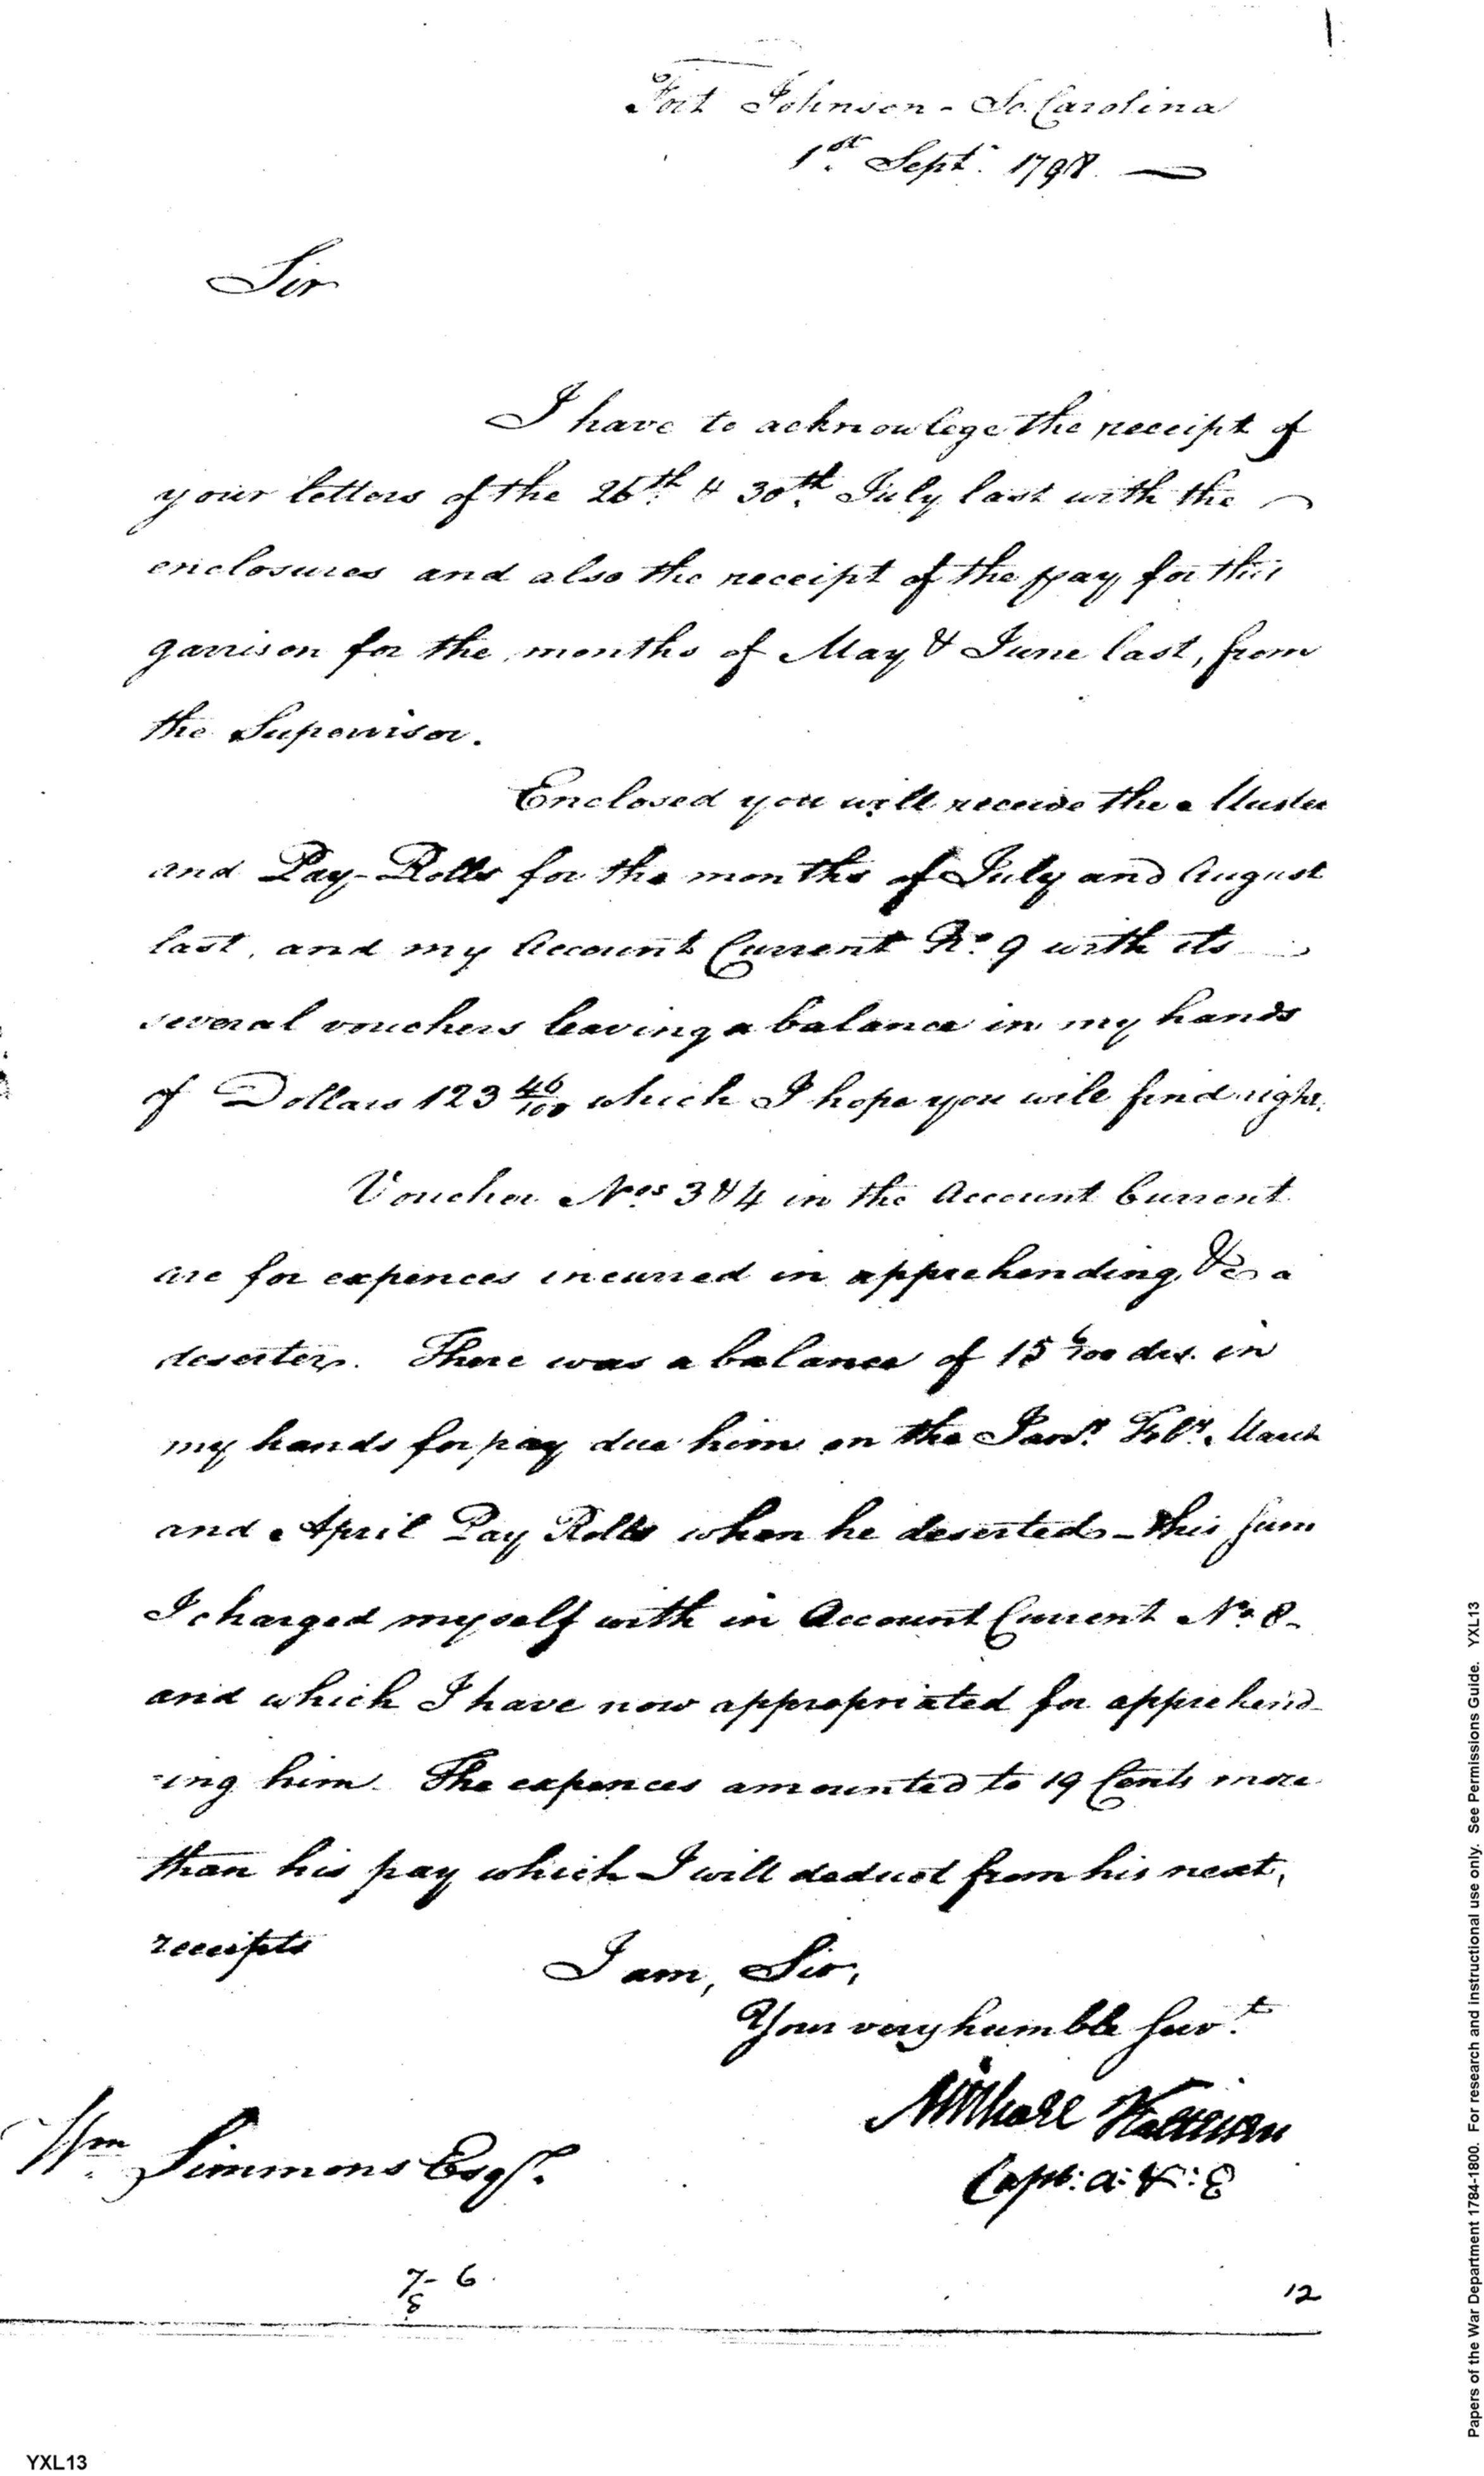 Fort Johnson - So. Carolina
1st. Sept. 1798. —
Sir
I have to acknowlege the receipt of
your letters of the 26th. & 30th. July last with the
enclosures and also the receipt of the pay for this
garrison for the months of May & June last, from
the Supervisor.
Enclosed you will receive the Muster
and Pay-Rolls for the months of July and August
last, and my Account Current No. 9 with its
several vouchers leaving a balance in my hands
of Dollars 123 46/100 which I hope you will find right.
Voucher Nos 3 & 4 in the Account Current
are for expences incurred in apprehending &c a
deserter. There was a balance of 15 6/100 drs. in
my hands for pay due him on the Jany. Feby. March
and April Pay Rolls when he deserted - this sum
I charged myself with in Account Current No. 8-
and which I have now appropriated for apprehend-
-ing him. The expences amounted to 19 Cents more
than his pay which I will deduct from his next,
receipts
I am, Sir,
Your very humble Servt.
Michael Kalteisen
Capt: A: & : E
Wm. Simmons Esqr.
7- 6
8
12
YXL13
Papers of the War Department 1784-1800. For research and instructional use only. See Permissions Guide. YXL13